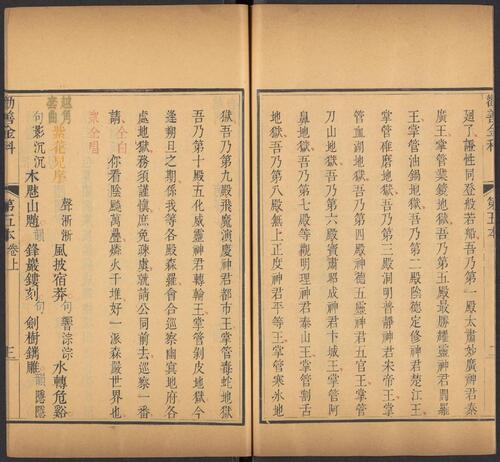 勸善金科 第五本
廸了謎性同登般若船吾乃第一殿太素妙廣神君秦
廣王掌管業鏡地獄吾乃第五殿最勝耀靈神君閻羅
王掌管油鍋地獄吾乃第二殿陰德定修神君楚江王
掌管碓磨地獄吾乃第三殿洞明普靜神君宋帝王掌
管血湖地獄吾乃第四殿神德五靈神君五官王掌管
刀山地獄吾乃第六殿寶肅昭成神君卞城王掌管阿
鼻地獄吾乃第七殿等觀明理神君泰山王掌管割舌
地獄吾乃第八殿無上正度神君平等王掌管寒氷地
獄吾乃第九殿飛魔演慶神君都市王掌管毒蛇地獄
吾乃第十殿五化威靈神君轉輪王掌管剝皮地獄今
逢朔旦之期係我等各殿森羅會合巡察幽冥地府各
處地獄務須謹慎庶免疎虞就請公同前去巡察一番
請全白你看陰颷萬疊燐火千堆好一派森嚴世界也
衆全唱
越角套曲 紫花兒序 聲淅淅風披宿莽句響淙淙水轉危谿
句影沉沉木魅山魈韻鋒巖鏤刻句劍樹鐫雕韻隱隱
勸善金科 第五本卷上 三